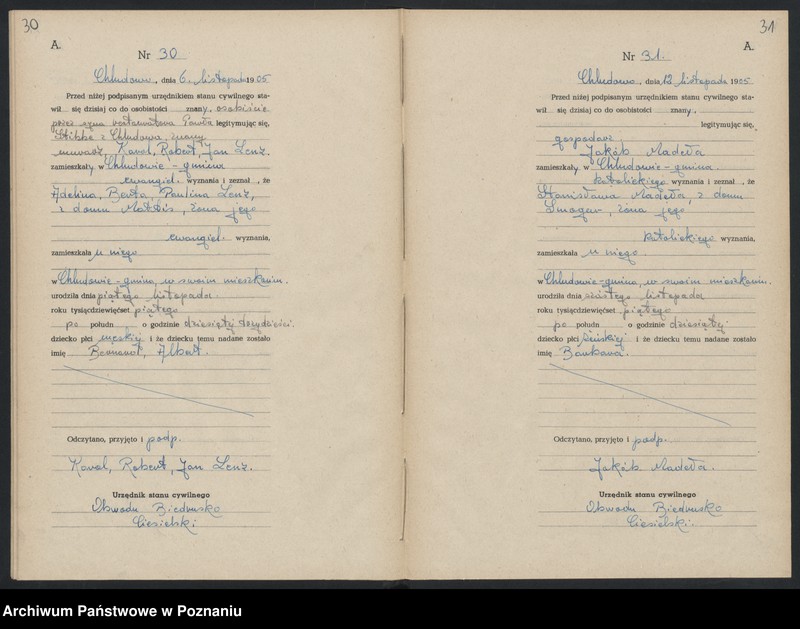 30
A.
Nr 30
Chludowo, dnia 6. listopada 1905
Przed niżej podpisanym urzędnikiem stanu cywilnego sta-
wił się dzisiaj co do osobistości znany, osobiście
przez legitymując się,
Stibbe z Chludowa, znany
murarz Karol, Robert, Jan Lenz.
zamieszkały w Chludowie - gmina
ewangiel. wyznania i zeznał, że
Adelina, Berta, Paulina Lenz,
z domu , żona jego
ewangiel. wyznania,
zamieszkała u niego
w Chludowie - gmina, w swoim mieszkaniu.
urodziła dnia piątego listopada
roku tysiącdziewięćset piątego
po połudn o godzinie dziesiątej trzydzieści
dziecko płci męskiej i że dziecku temu nadane zostało
imię Bernard, Albert.
Odczytano, przyjęto i podp.
Karol, Robert, Jan Lenz.
Urzędnik stanu cywilnego
Obwodu Biedrusko
Ciesielski
31
A.
Nr 31.
Chludowo, dnia 12 listopada 1905
Przed niżej podpisanym urzędnikiem stanu cywilnego sta-
wił się dzisiaj co do osobistości znany,
legitymując się,
gospodarz
Jakób Madeła
zamieszkały w Chludowie - gmina.
katolickiego wyznania i zeznał, że
Stanisława Madeła, z domu
Smogur, żona jego
katolickiego wyznania,
zamieszkała u niego
w Chludowie - gmina, w swoim mieszkaniu.
urodziła dnia szóstego listopada
roku tysiącdziewięćset piątego
po połudn o godzinie dziesiątej
dziecko płci żeńskiej i że dziecku temu nadane zostało
imię Barbara.
Odczytano, przyjęto i podp.
Jakób Madeła.
Urzędnik stanu cywilnego
Obwodu Biedrusko
Ciesielski.
Archiwum Państwowe w Poznaniu